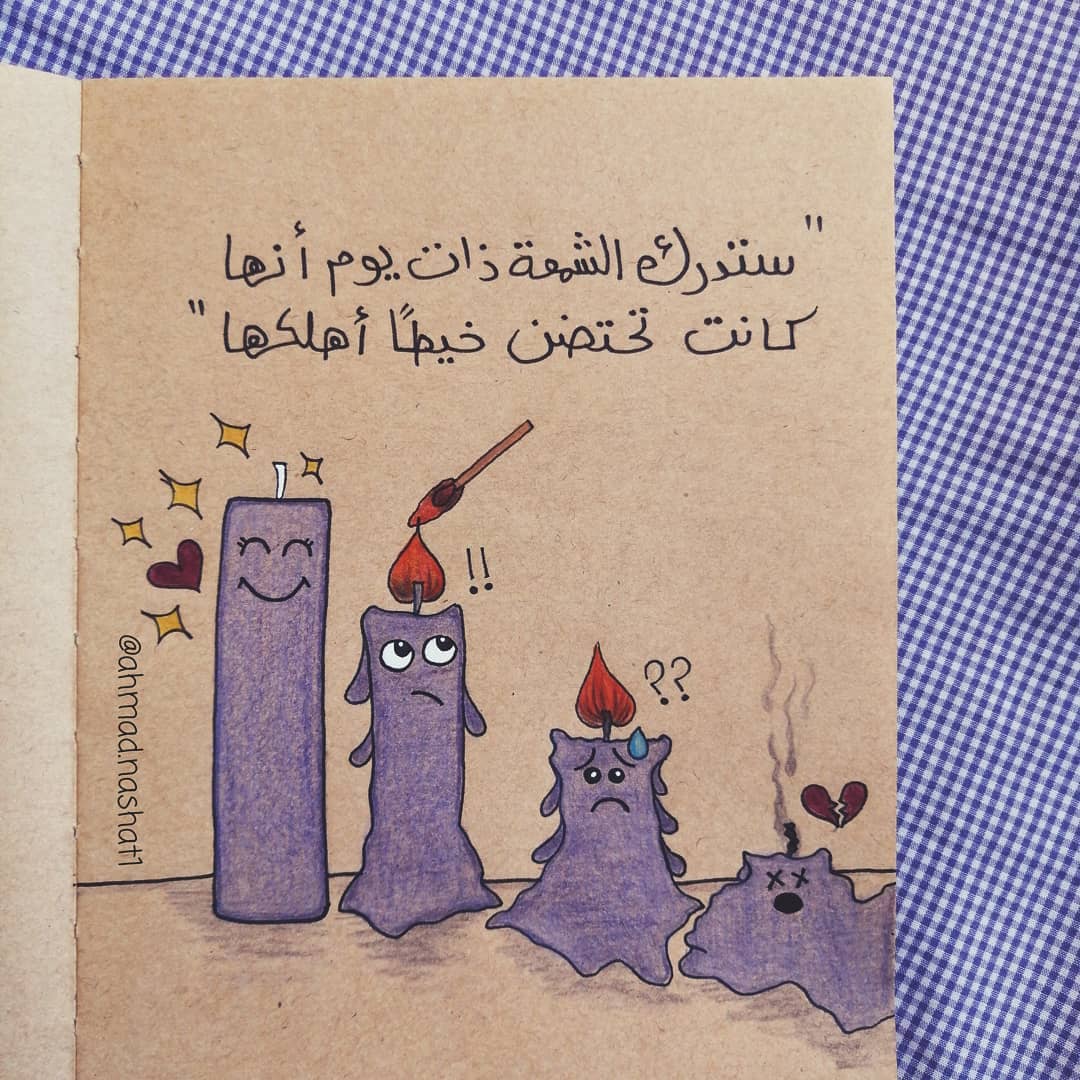 "ستدرك الشمعة ذات يوم أنها
كانت تحتضن خيطًا أهلكها"
!!
??
@ahmad.nashat1